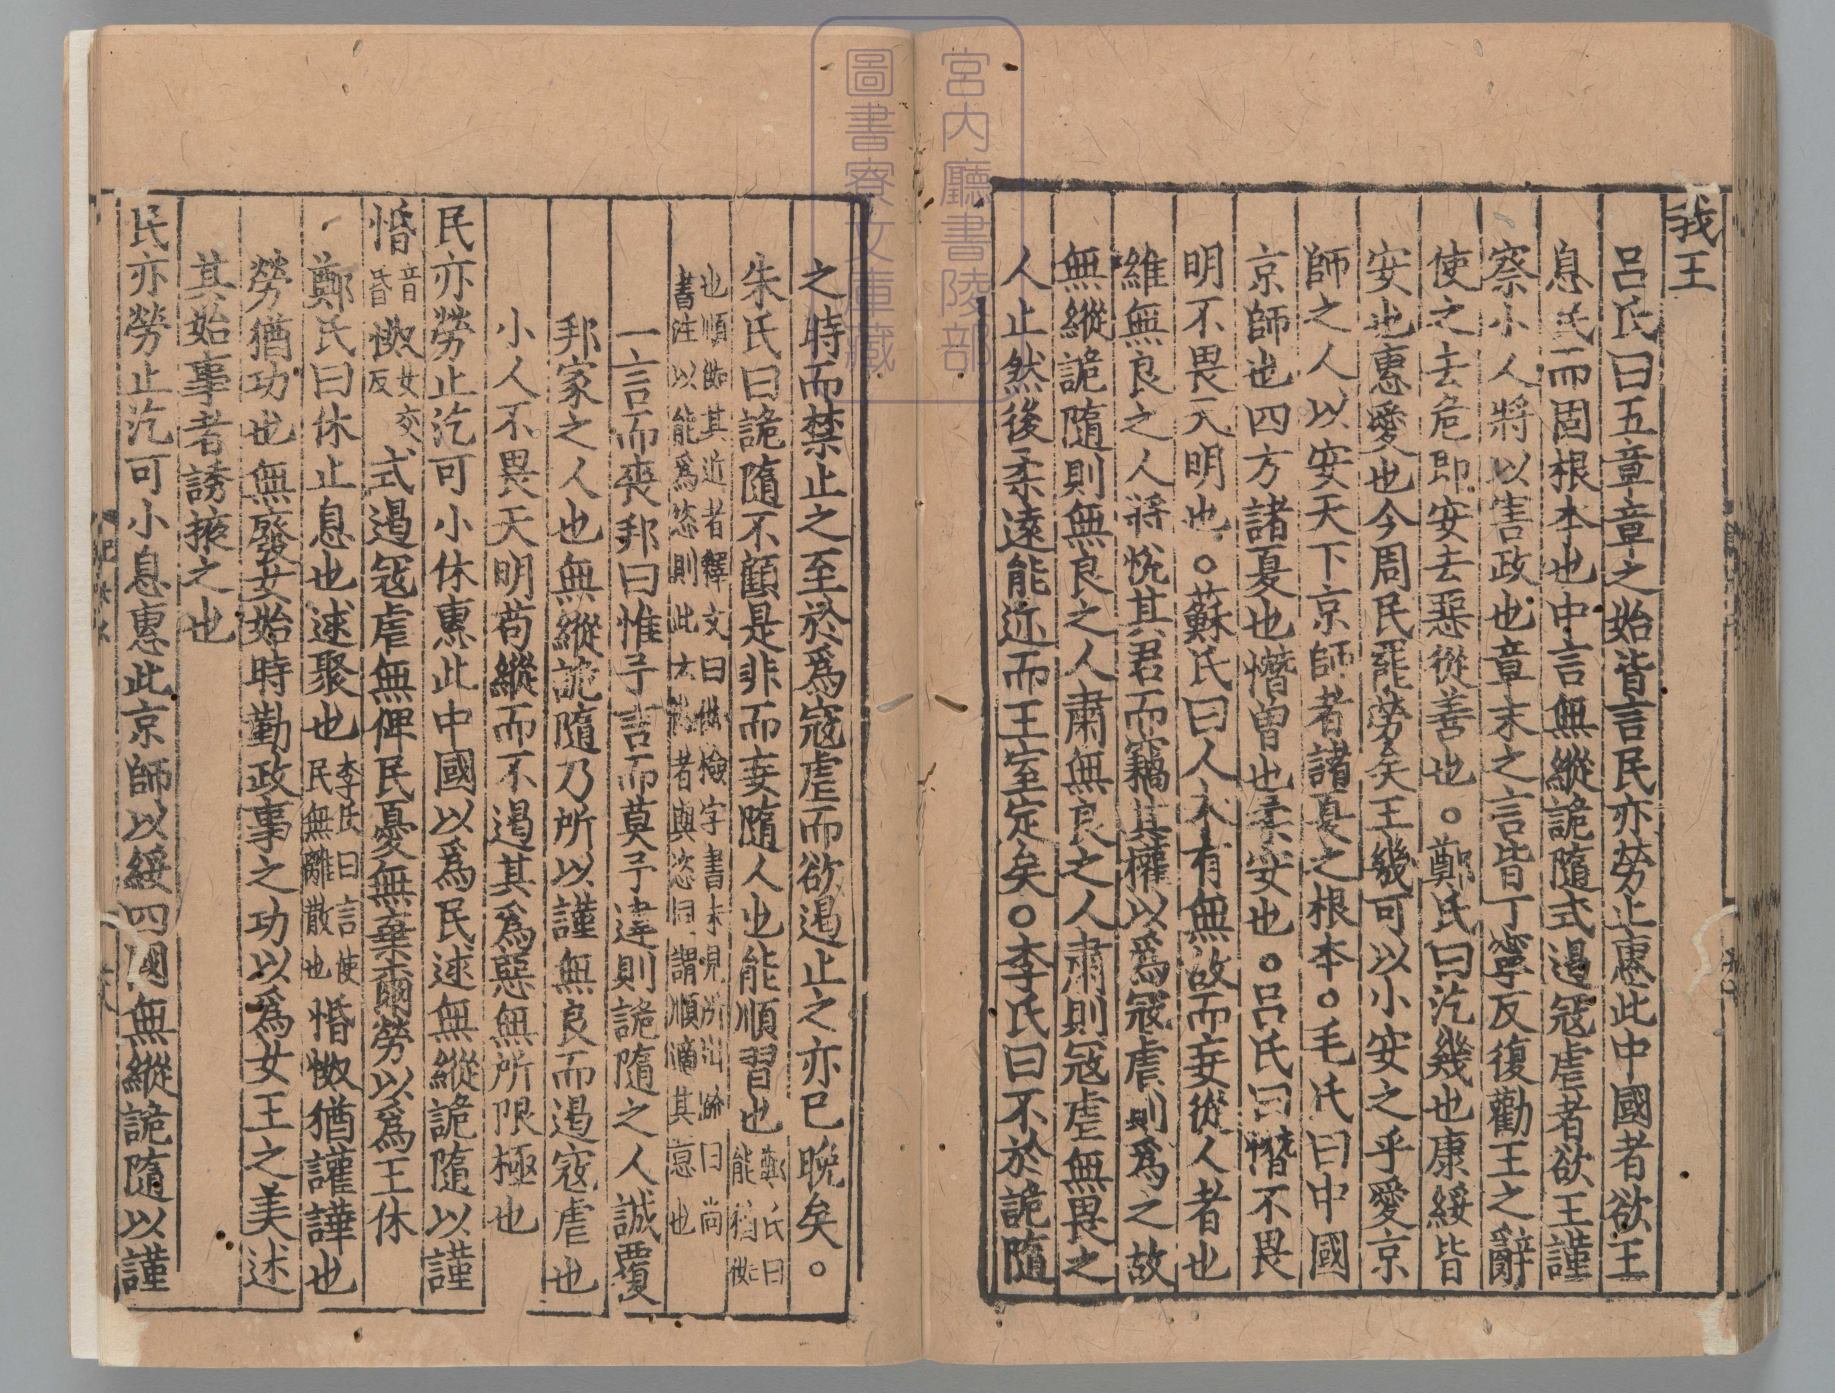 我王
呂氏曰五章章之始皆言民亦勞止惠此中國者欲王
息民而固根本也中言無縱詭隨式遏寇虐者欲王謹
察小人將以害政也章末之言皆丁寧反復勸王之辭
使之去危即安去惡從善也○鄭氏曰汔幾也康綏皆
安也惠愛也今周民罷勞矣王幾可以小安之乎愛京
師之人以安天下京師者諸夏之根本○毛氏曰中國
京師也四方諸夏也憯曾也柔安也○呂氏曰憯不畏
明不畏天明也○蘇氏曰人未有無故而妄從人者也
維無良之人將悅其君而竊其權以爲寇虐則爲之故
無縱詭隨則無良之人肅無良之人肅則寇虐無畏之
人止然後柔遠能近而王室定矣○李氏曰不於詭隨
之時而禁止之至於爲寇虐而欲遏止之亦已晩矣○
朱氏曰詭隨不顧是非而妄隨人也能順習也鄭氏曰能猶伽
也順伽其近者釋文曰伽檢字書未見所出 曰尚
書注以能爲恣則此 者與恣同謂順適其意也
一言而喪邦曰惟予言而莫予違則詭隨之人誠覆
邦家之人也無縱詭隨乃所以謹無良而遏寇虐也
小人不畏天明苟縱而不遏其爲惡無所限極也
民亦勞止汔可小休惠此中國以爲民逑無縱詭隨以謹
惛音昏怓女交反式遏寇虐無俾民憂無棄爾勞以爲王休
鄭氏曰休止息也逑聚也李氏曰言使民無離散也惛怓猶讙譁也
勞猶功也無廢女始時勤政事之功以爲女王之美述
其始事者誘掖之也
民亦勞止汔可小息惠此京師以綏四國無縱詭隨以謹
宮內廳書陵部
圖書寮文庫藏